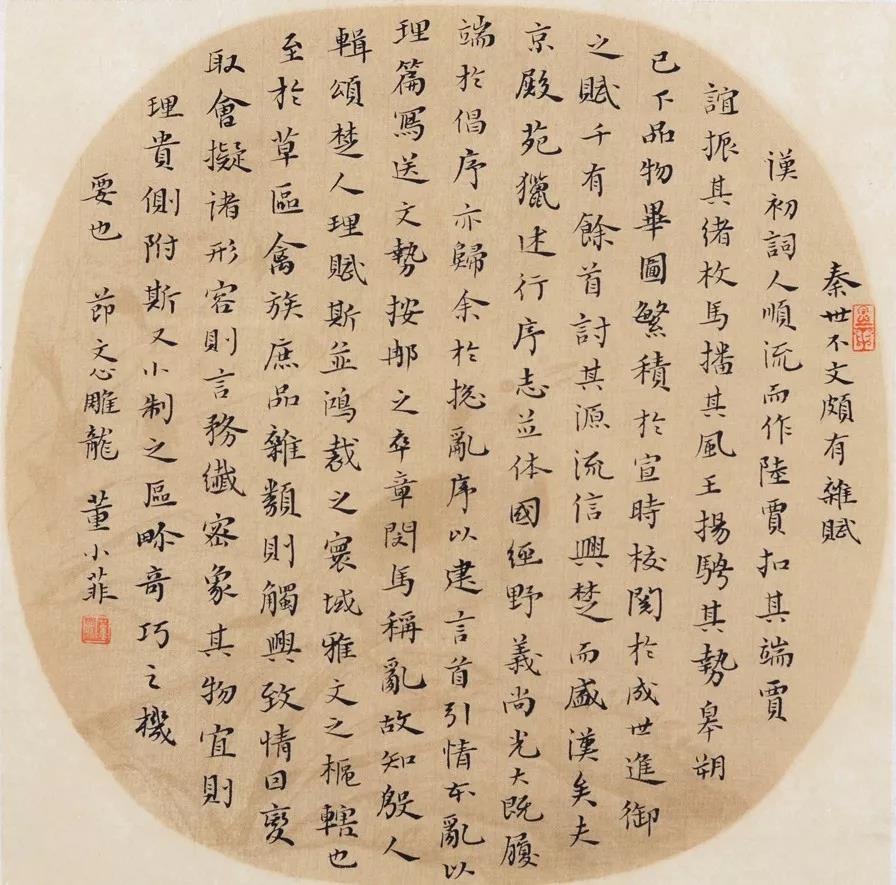 秦世不文頗有雜賦
漢初詞人順流而作陸賈扣其端賈
誼振其緒枚馬播其風王揚騁其勢皋朔
已下品物畢圖繁積於宣時校閱於成世進御
之賦千有餘首討其源流信興楚而盛漢矣夫
京殿苑獵述行序志並体國經野義尚光大既履
端於倡序亦歸余於捴亂序以建言首引情本亂以
理篇寫送文勢按那之卒章閔馬稱亂故知殷人
輯頌楚人理賦斯並鴻裁之寰域雅文之樞轄也
至於草區禽族庶品雜類則觸興致情因變
取會擬諸形容則言務纖密象其物宜則
理貴側附斯又小制之區畛奇巧之機
要也 節文心雕龍 董小菲